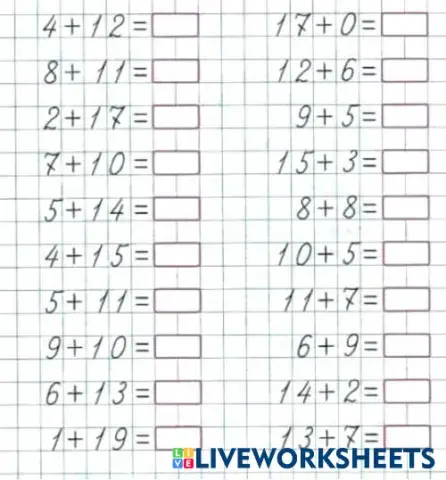 4+12=
8+11=
2+17=
7+10=
5+14=
4+15=
5+11=
9+10=
6+13=
1+19=
17+0=
12+6=
9+5=
15+3=
8+8=
10+5=
11+7=
6+9=
14+2=
13+7=
LIVEWORKSHEETS